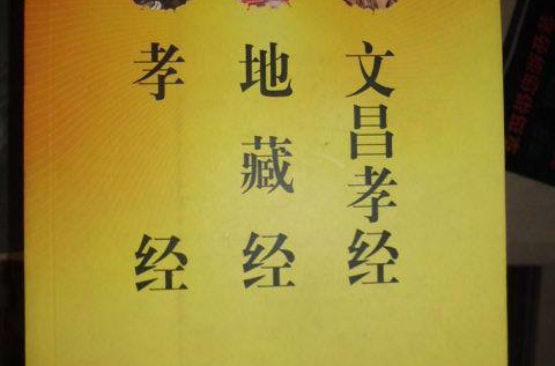 文昌孝经
地藏经
孝经